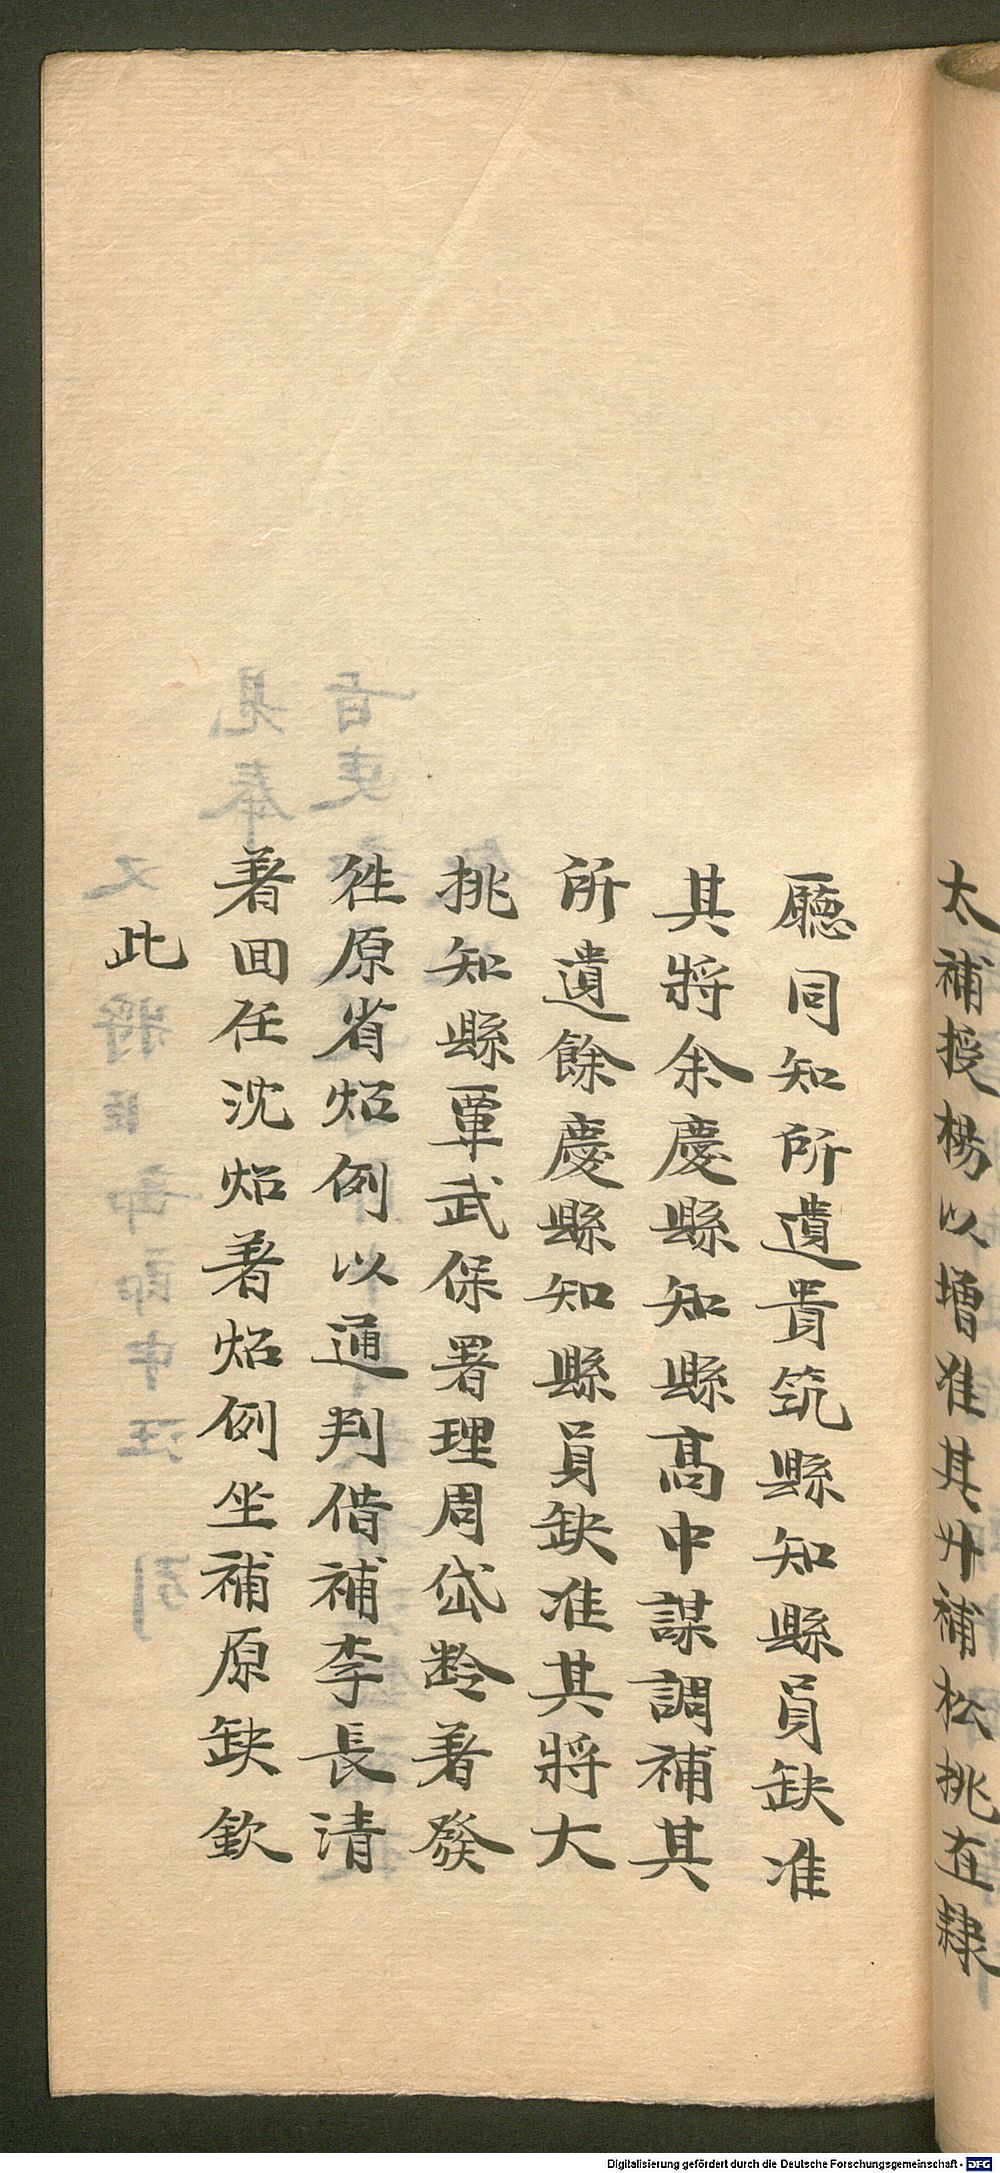 太補授楊以增准其升補松挑直隸
廳同知所遺貴筑縣知縣員缺准
其將余慶縣知縣高中謀調補其
所遺餘慶縣知縣員缺准其將大
挑知縣覃武保署理周岱齡著發
徃原省炤例以通判借補李長清
著囬任沈炤著炤例坐補原缺欽
此
Digitalisierung gefördert durch die Deutsche Forschungsgemeinschaft - DFG